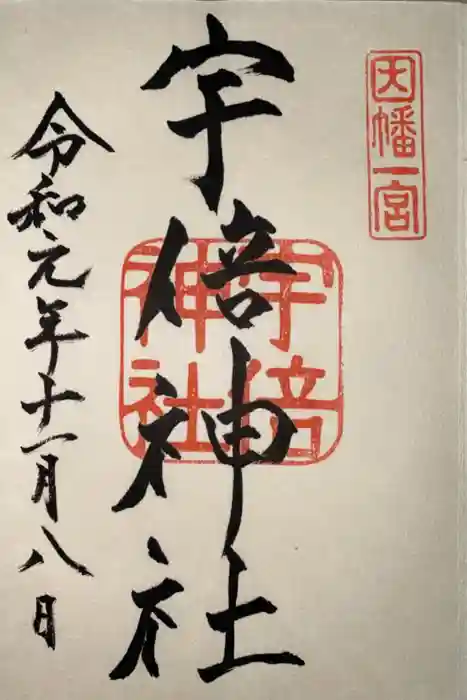 因幡一宮
宇倍神社
宇倍神社
令和元年十一月八日